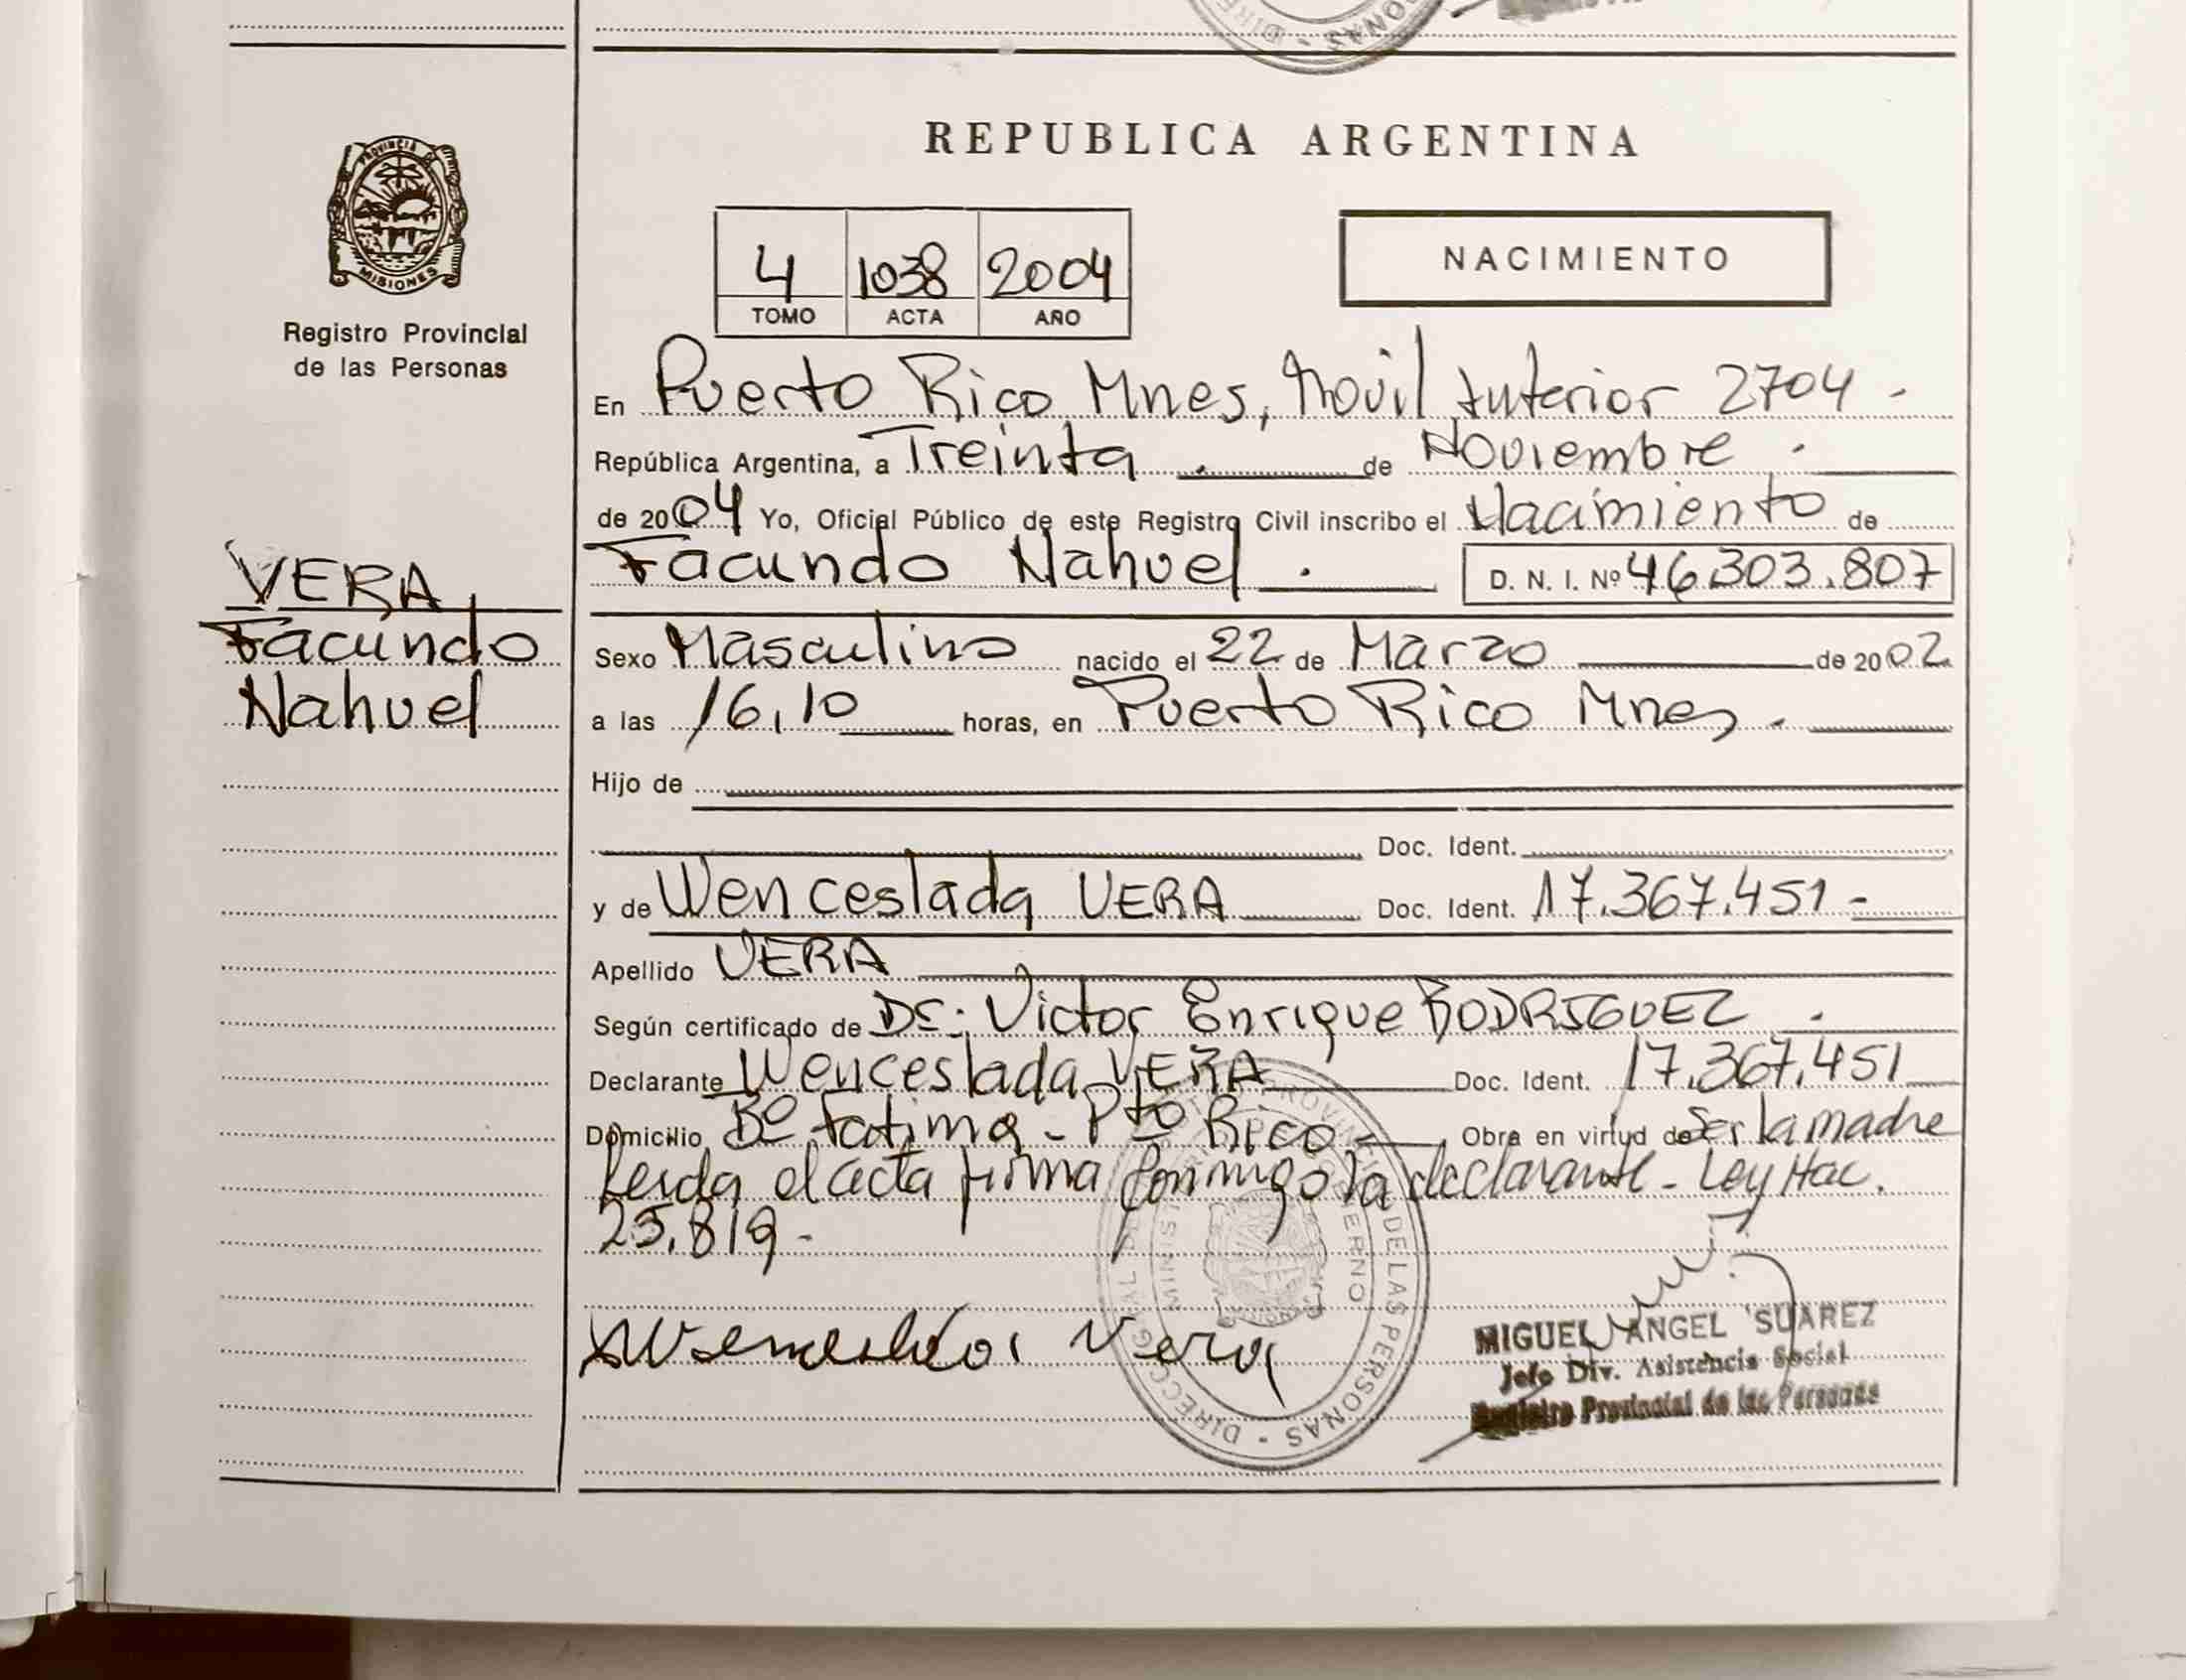 REPUBLICA ARGENTINA
PROVINCIA DE
MISIONES
Registro Provincial
de las Personas
4 1038 2004
TOMO ACTA AÑO
NACIMIENTO
En Puerto Rico Mnes, Movil Interior 2704 -
República Argentina, a Treinta . de Noviembre .
de 2004 Yo, Oficial Público de este Registro Civil inscribo el Nacimiento de
Facundo Nahuel . D. N. I. Nº 46.303.807
VERA,
Facundo
Nahuel
Sexo Masculino nacido el 22 de Marzo de 2002
a las 16,10 horas, en Puerto Rico Mnes.
Hijo de
Doc. Ident.
y de Wenceslada VERA Doc. Ident. 17.367.451-
Apellido VERA
Según certificado de Dr: Victor Enrique RODRIGUEZ .
Declarante Wenceslada VERA Doc. Ident. 17.367.451
Domicilio Bº Fatima - Pto Rico Obra en virtud de Ser la madre
Leida el acta firma conmigo la declarante - Ley Nac.
25.819-
Vera
MIGUEL ANGEL SUAREZ
Jefe Div. Asistencia Social
Registro Provincial de las Personas
DE LAS PERSONAS - DIRECCION